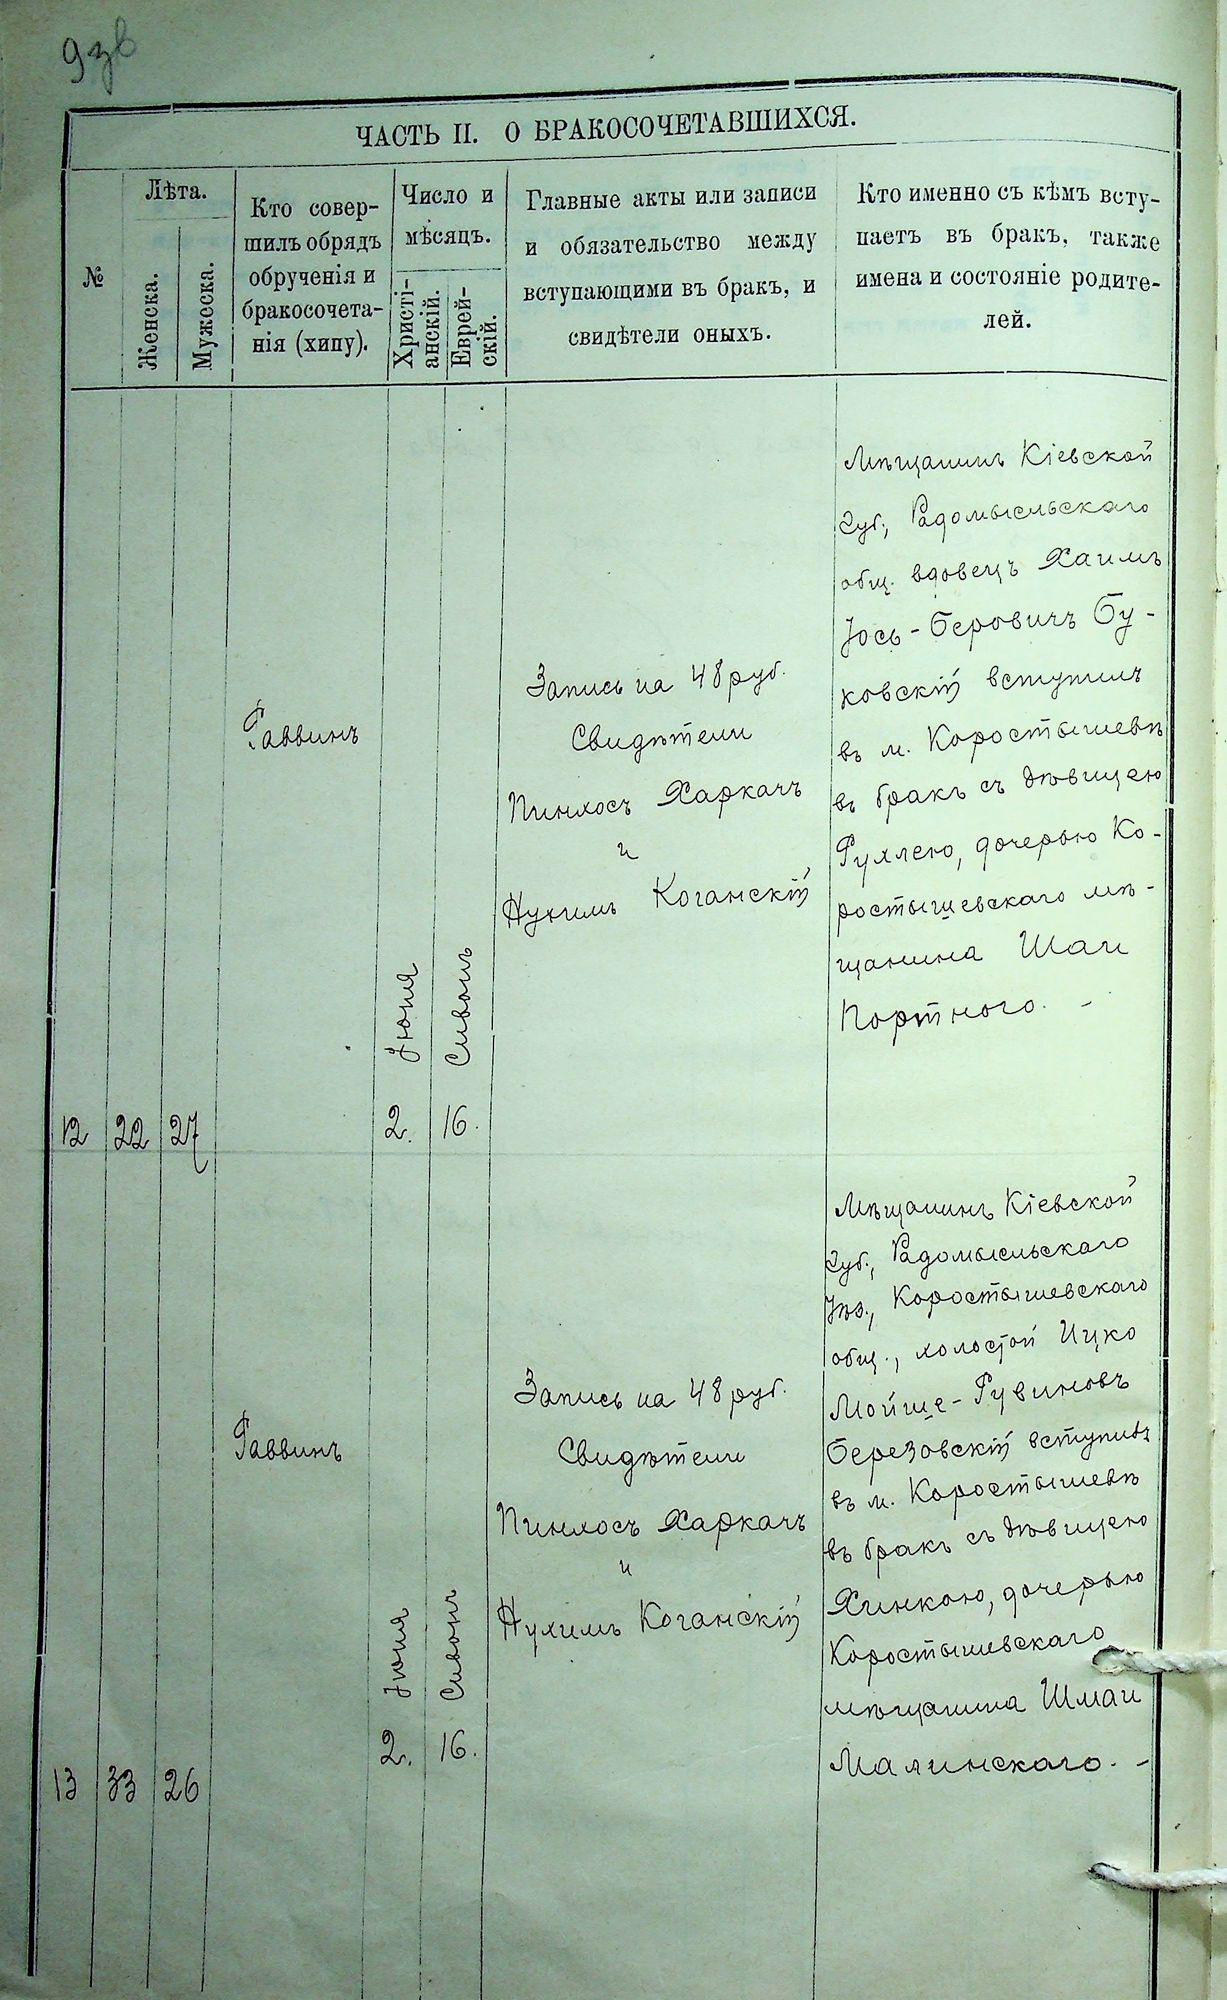 93в
ЧАСТЬ II. О БРАКОСОЧЕТАВШИХСЯ.
№
Лѣта.
Женска.
Мужеска.
Кто совер-
шилъ обрядъ
обрученія и
бракосочета-
нія (хипу).
Число и
мѣсяцъ.
Христі-
анскій.
Еврей-
скій.
Главные акты или записи
и обязательство между
вступающими въ бракъ, и
свидѣтели оныхъ.
Кто именно съ кѣмъ всту-
паетъ въ бракъ, также
имена и состояніе родите-
лей.
12
22
27
Раввинъ
2. Іюня
16. Сивонъ
Запись на 48 руб.
Свидѣтели
Пинхосъ Харкачъ
и
Нухимъ Коганскій
Мѣщанинъ Кіевской
Губ., Радомысльскаго
общ. вдовецъ Хаимъ
Іось-Беровичъ Бу-
ковскій вступилъ
въ м. Коростышевѣ
въ бракъ съ дѣвицею
Рухлею, дочерью Ко-
ростышевскаго мѣ-
щанина Шаи
Портного. -
13
33
26
Раввинъ
2. Іюня
16. Сивонъ
Запись на 48 руб.
Свидѣтели
Пинхосъ Харкачъ
и
Нухимъ Коганскій
Мѣщанинъ Кіевской
Губ., Радомысльскаго
Уѣз., Коростышевскаго
общ., холостой Ицко
Мойше-Рувиновъ
Березовскій вступилъ
въ м. Коростышевѣ
въ бракъ съ дѣвицею
Хинкою, дочерью
Коростышевскаго
мѣщанина Шмаи
Малинскаго. -